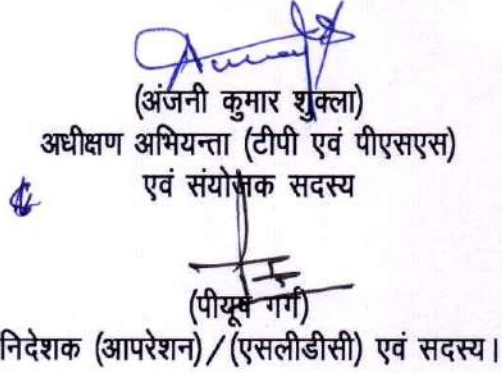 (अंजनी कुमार शुक्ला)
अधीक्षण अभियन्ता (टीपी एवं पीएसएस)
एवं संयोजक सदस्य
(पीयूष गर्ग)
निदेशक (आपरेशन)/(एसलीडीसी) एवं सदस्य।